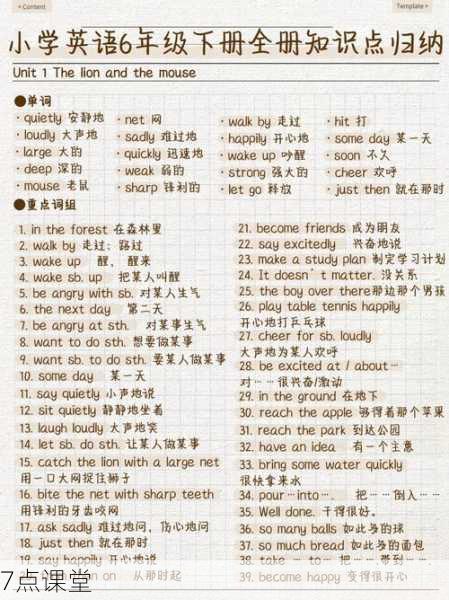 • Content
Template •
小学英语6年级下册全册知识点归纳
Unit 1 The lion and the mouse
●单词
· quietly 安静地
· loudly 大声地
· large 大的
· deep 深的
· mouse 老鼠
· net 网
· sadly 难过地
· quickly 迅速地
· weak 弱的
· sharp 锋利的
· walk by 走过
· happily 开心地
· wake up 吵醒
· strong 强大的
· let go 释放
· hit 打
· some day 某一天
· soon 不久
· cheer 欢呼
· just then 就在那时
●重点词组
1. in the forest 在森林里
2. walk by 走过；路过
3. wake up 醒，醒来
4. wake sb. up 把某人叫醒
5. be angry with sb. 对某人生气
6. the next day 第二天
7. be angry at sth. 对某事生气
8. want to do sth. 想要做某事
9. want sb. to do sth. 要某人做某事
10. some day 某一天
11. say quietly 小声地说
12. sit quietly 静静地坐着
13. laugh loudly 大声地笑
14. let sb. do sth. 让某人做某事
15. catch the lion with a large net
用一口大网捉住狮子
16. bite the net with sharp teeth
用锋利的牙齿咬网
17. ask sadly 难过地问，伤心地问
18. just then 就在那时
19. say happily 开心地说
on 从那时起
21. become friends 成为朋友
22. say excitedly 兴奋地说
23. make a study plan 制定学习计划
24. It doesn't matter. 没关系
25. the boy over there那边那个男孩
26. play table tennis happily
开心地打乒乓球
27. cheer for sb. loudly
大声地为某人欢呼
28. be excited at / about…
对……很兴奋/激动
29. in the ground 在地下
30. reach the apple 够得着那个苹果
31. reach the park 到达公园
32. have an idea 有一个主意
33. bring some water quickly
很快拿来水
34. pour…into…. 把……倒入……
35. Well done. 干得很好。
36. so many balls 如此多的球
37. so much bread 如此多的面包
38. take … to … 把……带到…
39. become happy 变得很开心
7点课堂